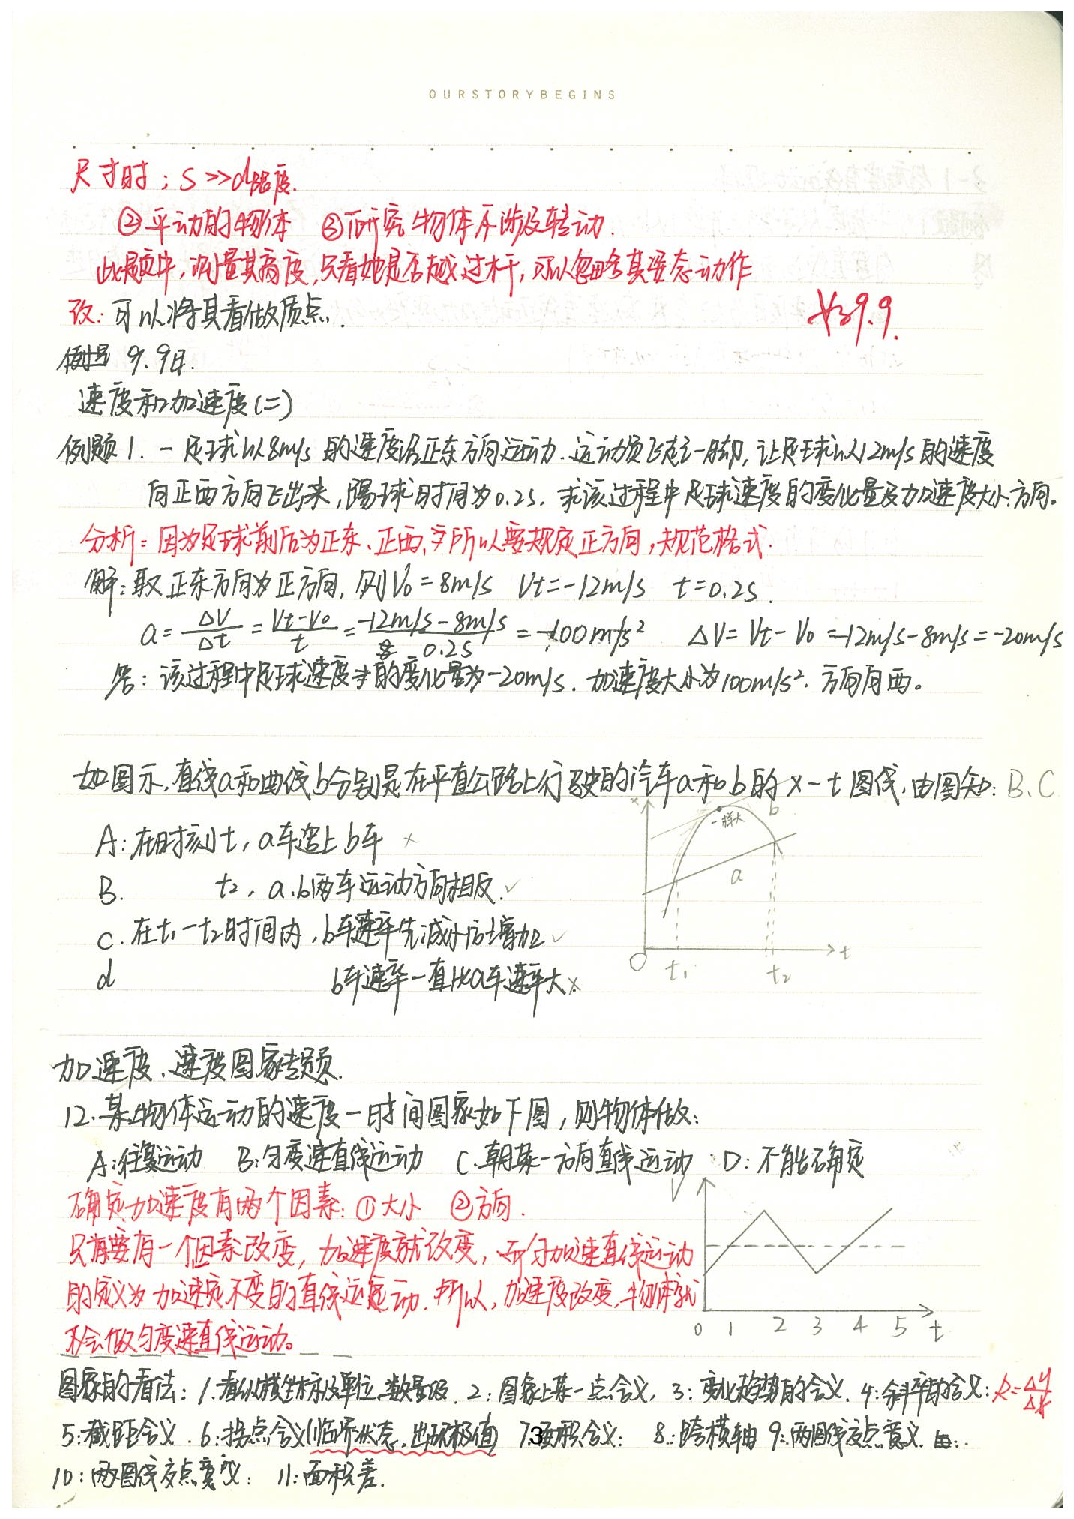 OURSTORYBEGINS
尺寸时；S>>d
②平动的物体 ③研究物体不涉及转动.
此题中,测量其高度,只看她是否越过杆,可以忽略其姿态动作
改:可以将其看做质点.
9.9.
9.9日.
速度和加速度(二)
例题1.一足球以8m/s的速度沿正东方向运动.运动员飞起一脚,让足球以12m/s的速度
向正西方向飞出来,踢球时间为0.2s.求该过程中足球速度的变化量及加速度大小方向。
分析:因为足球前后为正东、正西,所以要规定正方向,规范格式.
解:取正东方向为正方向,则V₀=8m/s Vt=-12m/s t=0.2s.
a=ΔV/Δt=Vt-V₀/t=-12m/s-8m/s/0.2s=-100m/s² ΔV=Vt-V₀=-12m/s-8m/s=-20m/s
答:该过程中足球速度的变化量为-20m/s.加速度大小为100m/s².方向向西。
如图示,直线a和曲线b分别是在平直公路上行驶的汽车a和b的x-t图线,由图知:B、C
A:在时刻t₁a车追上b车 ×
B. t₂,a.b两车运动方向相反.✓
C.在t₁-t₂时间内,b车速率先减小后增加 ✓
d b车速率一直比a车速率大×
x
一样大
b
a
O t₁ t₂ t
加速度、速度图象专题.
12.某物体运动的速度一时间图象如下图,则物体做:
A:往复运动 B:匀变速直线运动 C.朝某一方向直线运动 ✓ D:不能确定
确定加速度有两个因素:①大小 ②方向.
只需要有一个因素改变,加速度就改变,而匀加速直线运动
的定义为加速度不变的直线运动.所以,加速度改变,物体就
不会做匀变速直线运动。
0 1 2 3 4 5 t
图象的看法:1.看纵横坐标及单位、数量级.2:图象上某一点含义,3:变化趋势的含义.4:斜率的含义:k=Δy/Δx
5:截距含义.6:拐点含义(临界状态,出现极值) 7.面积含义: 8.跨横轴 9.两图线交点意义
10:两图线交点意义: 11:面积差.
3